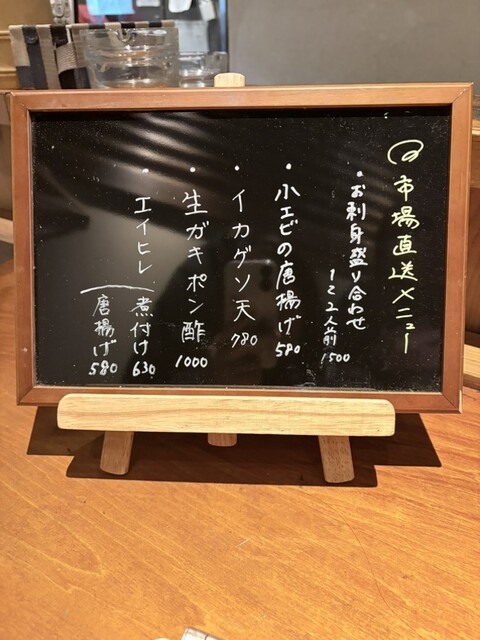 市場直送メニュー
・お刺身盛り合わせ
1~2人前 1500
・小エビの唐揚げ 580
・イカゲソ天 780
・生ガキポン酢 1000
・エイヒレ 煮付け 630
唐揚げ 580